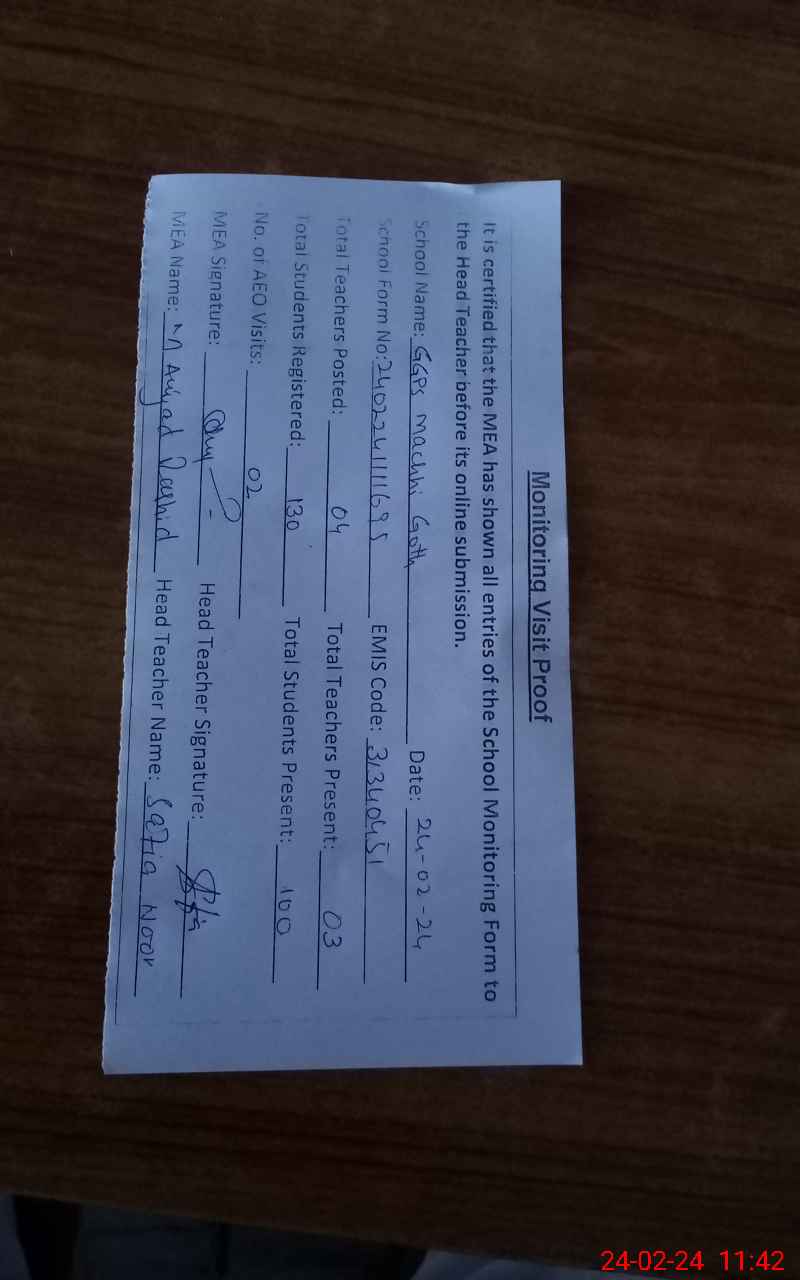 Monitoring Visit Proof
It is certified that the MEA has shown all entries of the School Monitoring Form to
the Head Teacher before its online submission.
School Name: GGPS Machhi Goth Date: 24-02-24
School Form No: 240224111695 EMIS Code: 31340451
Total Teachers Posted: 04 Total Teachers Present: 03
Total Students Registered: 130 Total Students Present: 100
No. of AEO Visits: 02
MEA Signature: Head Teacher Signature:
MEA Name: M Amjad Rashid Head Teacher Name: Safia Noor
24-02-24 11:42